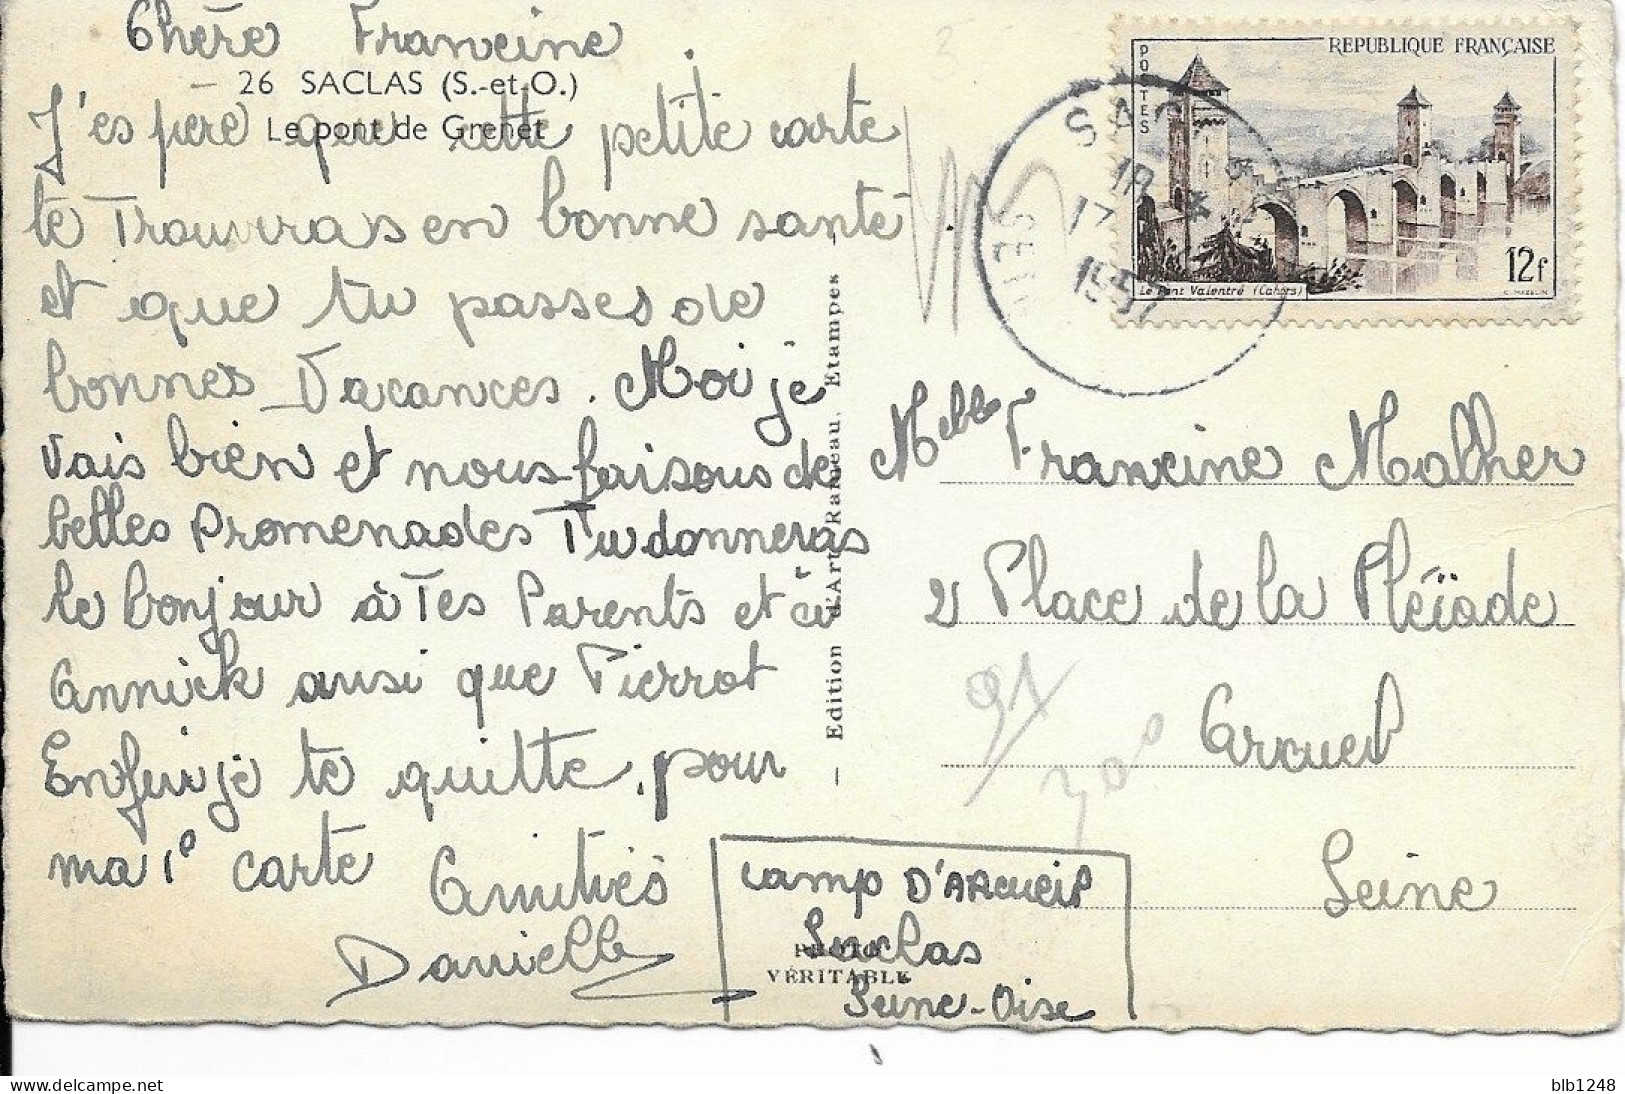 Chère Francine
26 SACLAS (S.-et-O.)
Le pont de Grenet
J'espère que cette petite carte
te Trouvras en bonne santé
et que tu passes de
bonnes Vacances. Moi je
vais bien et nous faisons de
belles Promenades Tu donneras
le bonjour à Tes Parents et à
Annick ausi que Pierrot
Enfin je te quitte, pour
ma 1e carte Amitiés
Danielle
Edition d'Art Rameau, Etampes
PHOTO
VÉRITABLE
camp D'ARcueil
Saclas
Seine-Oise
POSTES
REPUBLIQUE FRANÇAISE
Le Pont Valentré (Cahors)
12f
C. MAZELIN
SAC
18
17
1957
Melle Francine Malher
2 Place de la Pléïade
Arcueil
Seine
91
blb1248
Delcampe.net